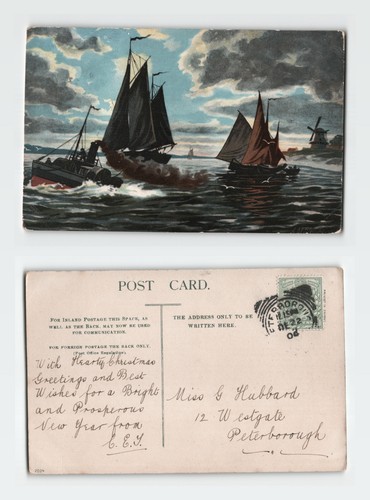 POST CARD.
FOR INLAND POSTAGE THIS SPACE, AS
WELL AS THE BACK, MAY NOW BE USED
FOR COMMUNICATION.
THE ADDRESS ONLY TO BE
WRITTEN HERE.
FOR FOREIGN POSTAGE THE BACK ONLY.
(Post Office Regulation).
With Hearty Christmas
Greetings and Best
Wishes for a Bright
and Prosperous
New Year from
Miss G Hubbard
12 Westgate
Peterborough
PETERBOROUGH
DE 23
06